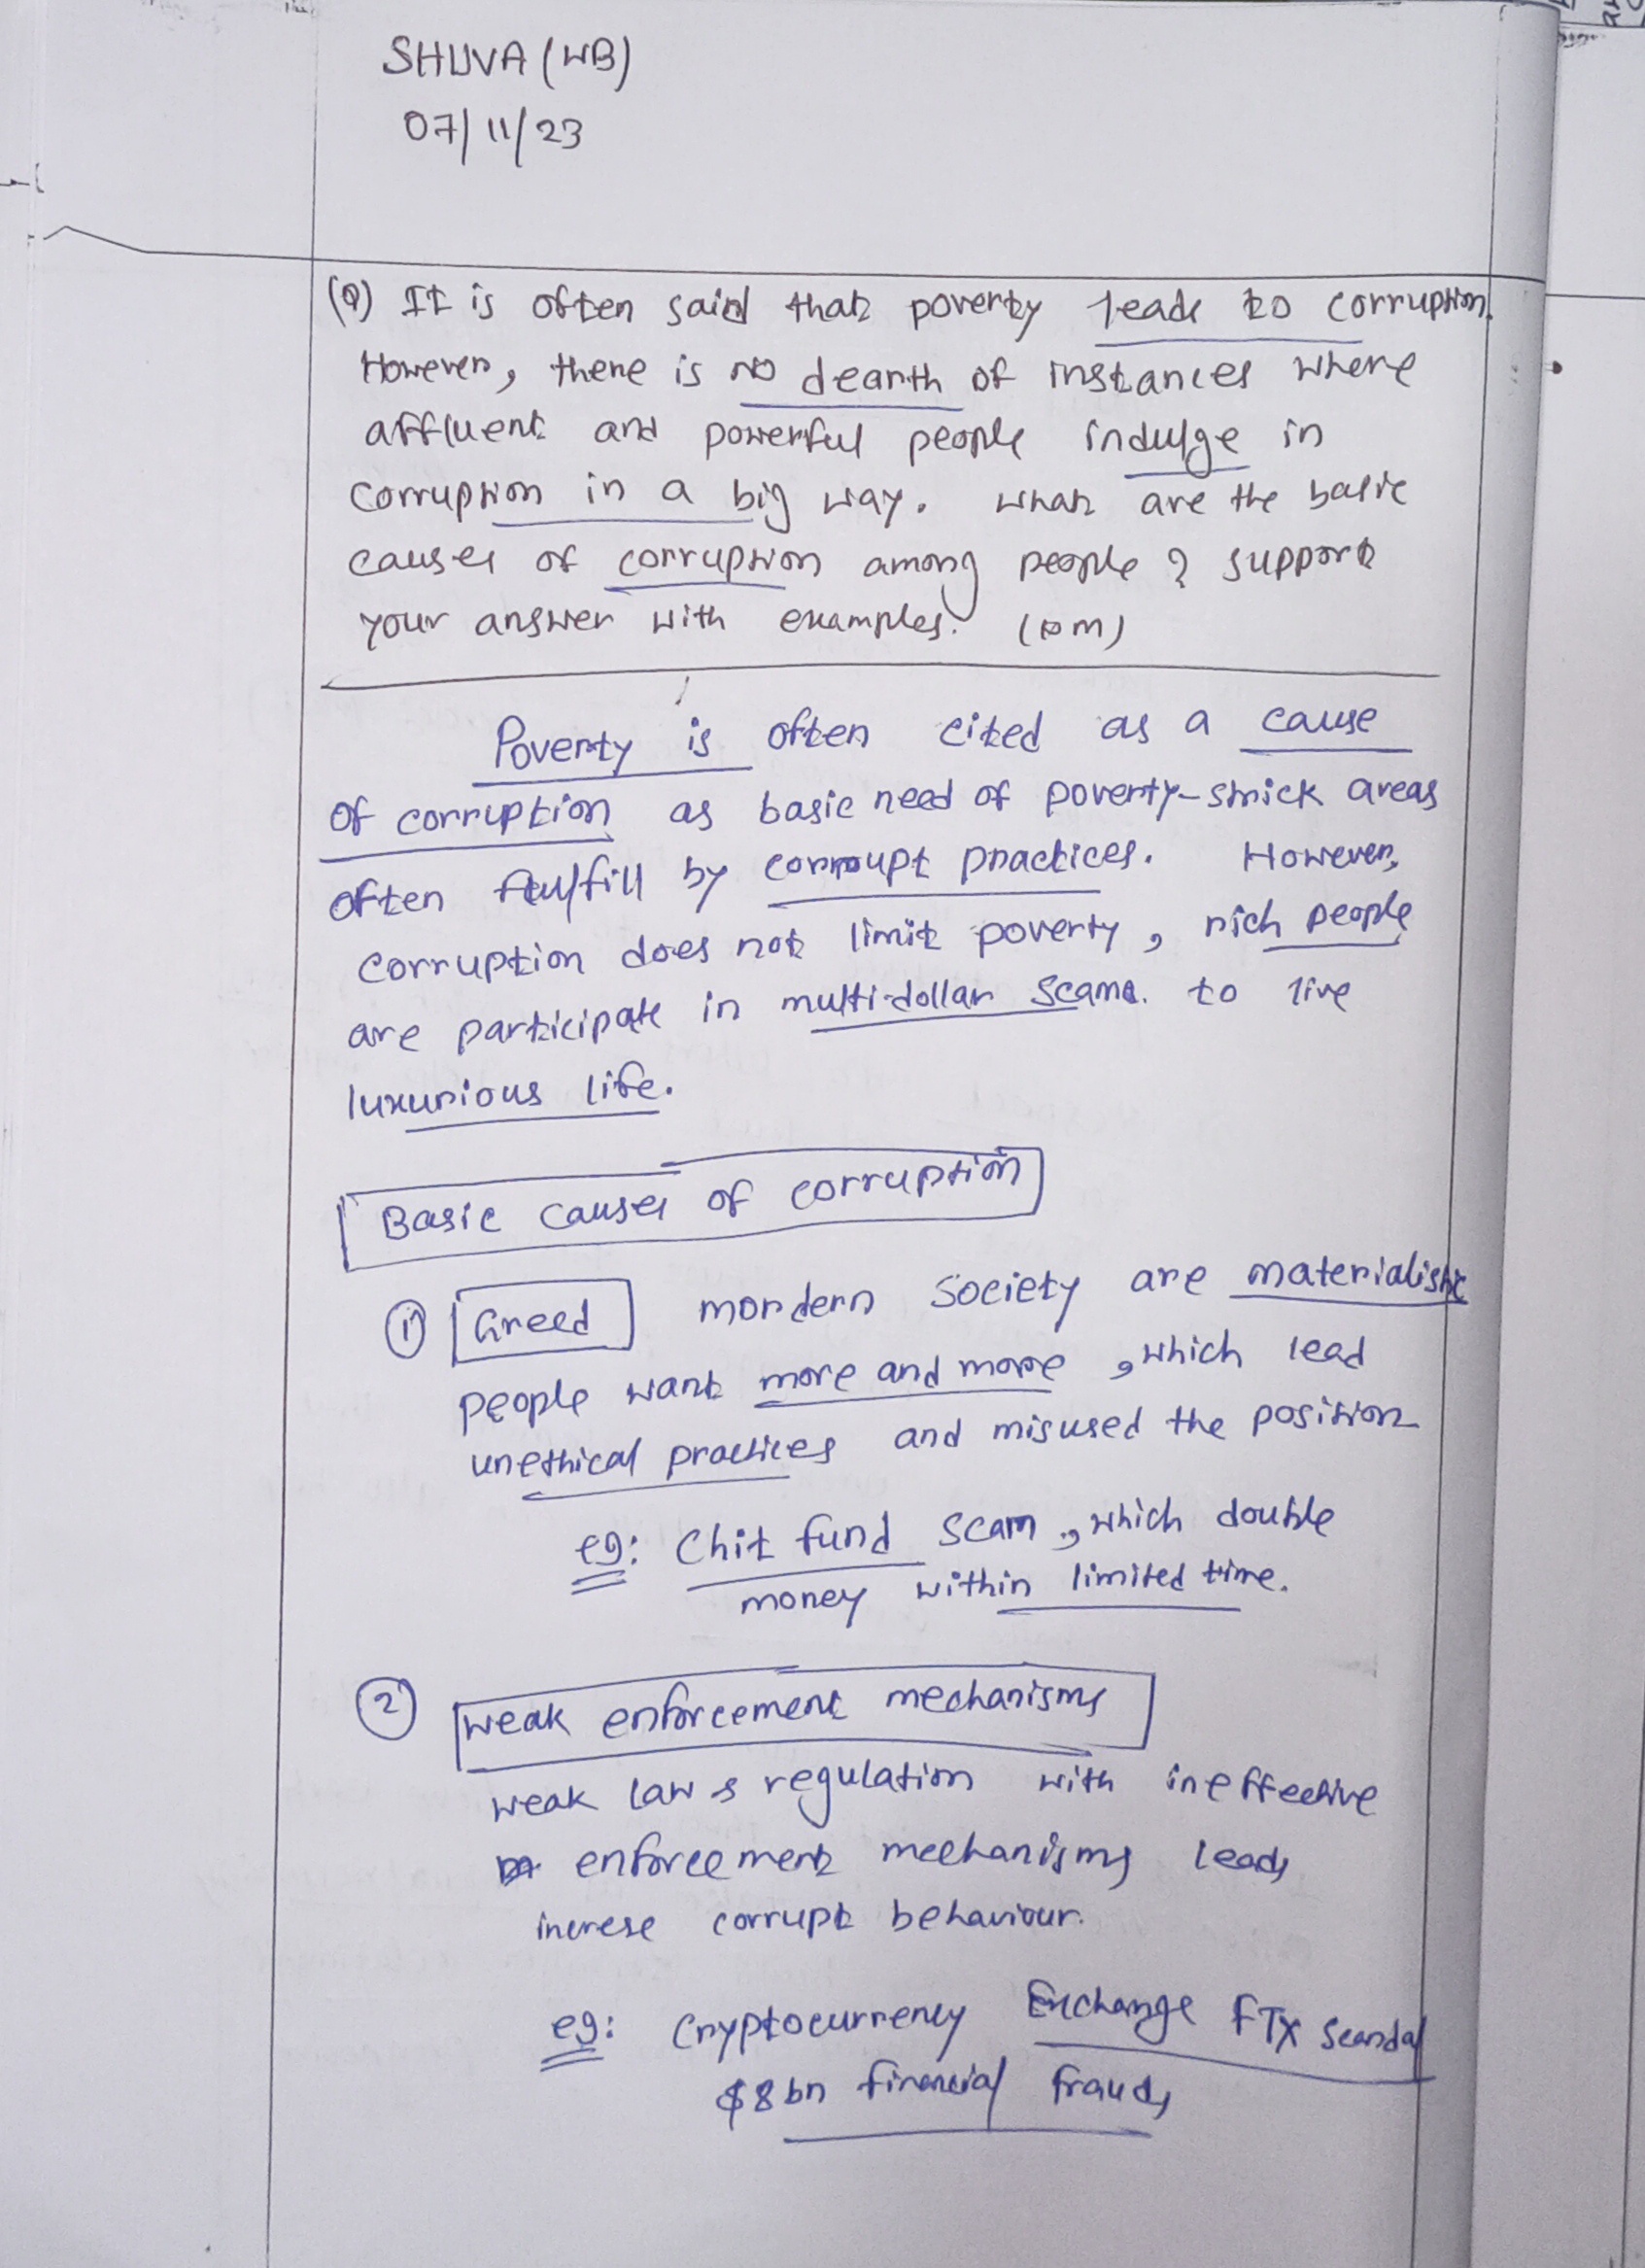 SHUVA (WB)
07/11/23
(Q) It is often said that poverty leads to corruption.
However, there is no dearth of instances where
affluent and powerful people indulge in
corruption in a big way. What are the basic
causes of corruption among people? support
your answer with examples. (10m)
Poverty is often cited as a cause
of corruption as basic need of poverty-strick areas
often fulfill by corrupt practices. However,
corruption does not limit poverty, rich people
are participate in multi-dollar scams. to live
luxurious life.
Basic causes of corruption
① Greed mordern society are materialistic
people want more and more, which lead
unethical practices and misused the position
eg: Chit fund scam, which double
money within limited time.
② weak enforcement mechanisms
weak law & regulation with ineffective
enforcement mechanisms leads
increse corrupt behaviour.
eg: Cryptocurrency Exchange FTX scandal
$8bn financial frauds